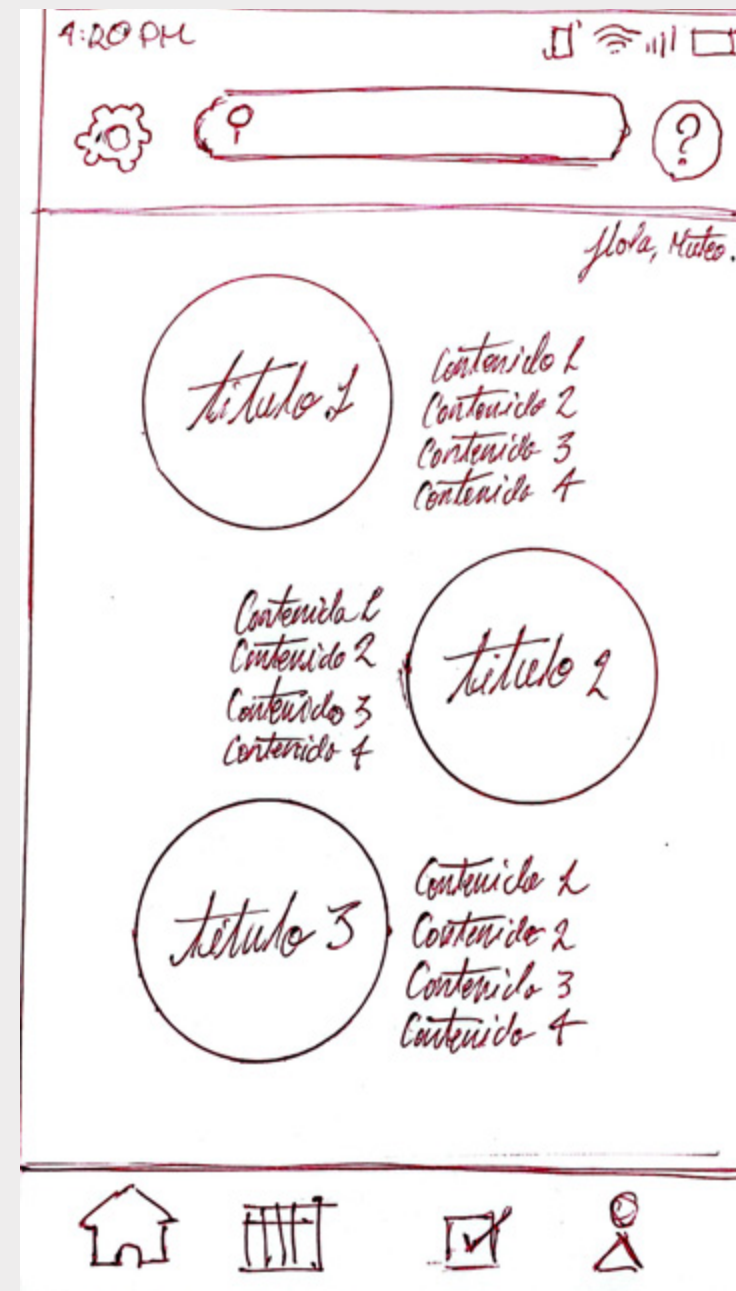 4:20 PM
?
Hola, Mateo.
título 1
Contenido 1
Contenido 2
Contenido 3
Contenido 4
Contenido 1
Contenido 2
Contenido 3
Contenido 4
título 2
título 3
Contenido 1
Contenido 2
Contenido 3
Contenido 4